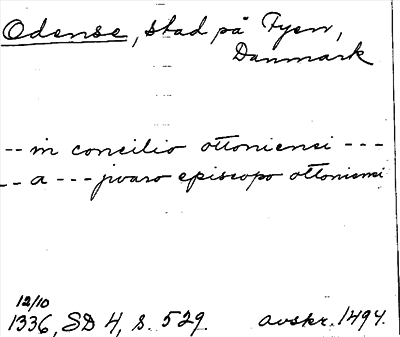 Odense, stad på Fyen,
Danmark
-- in concilio ottoniensi ---
-- a --- jvaro episcopo ottoniensi
12/10
1336, SD 4, s. 529. avskr. 1494.